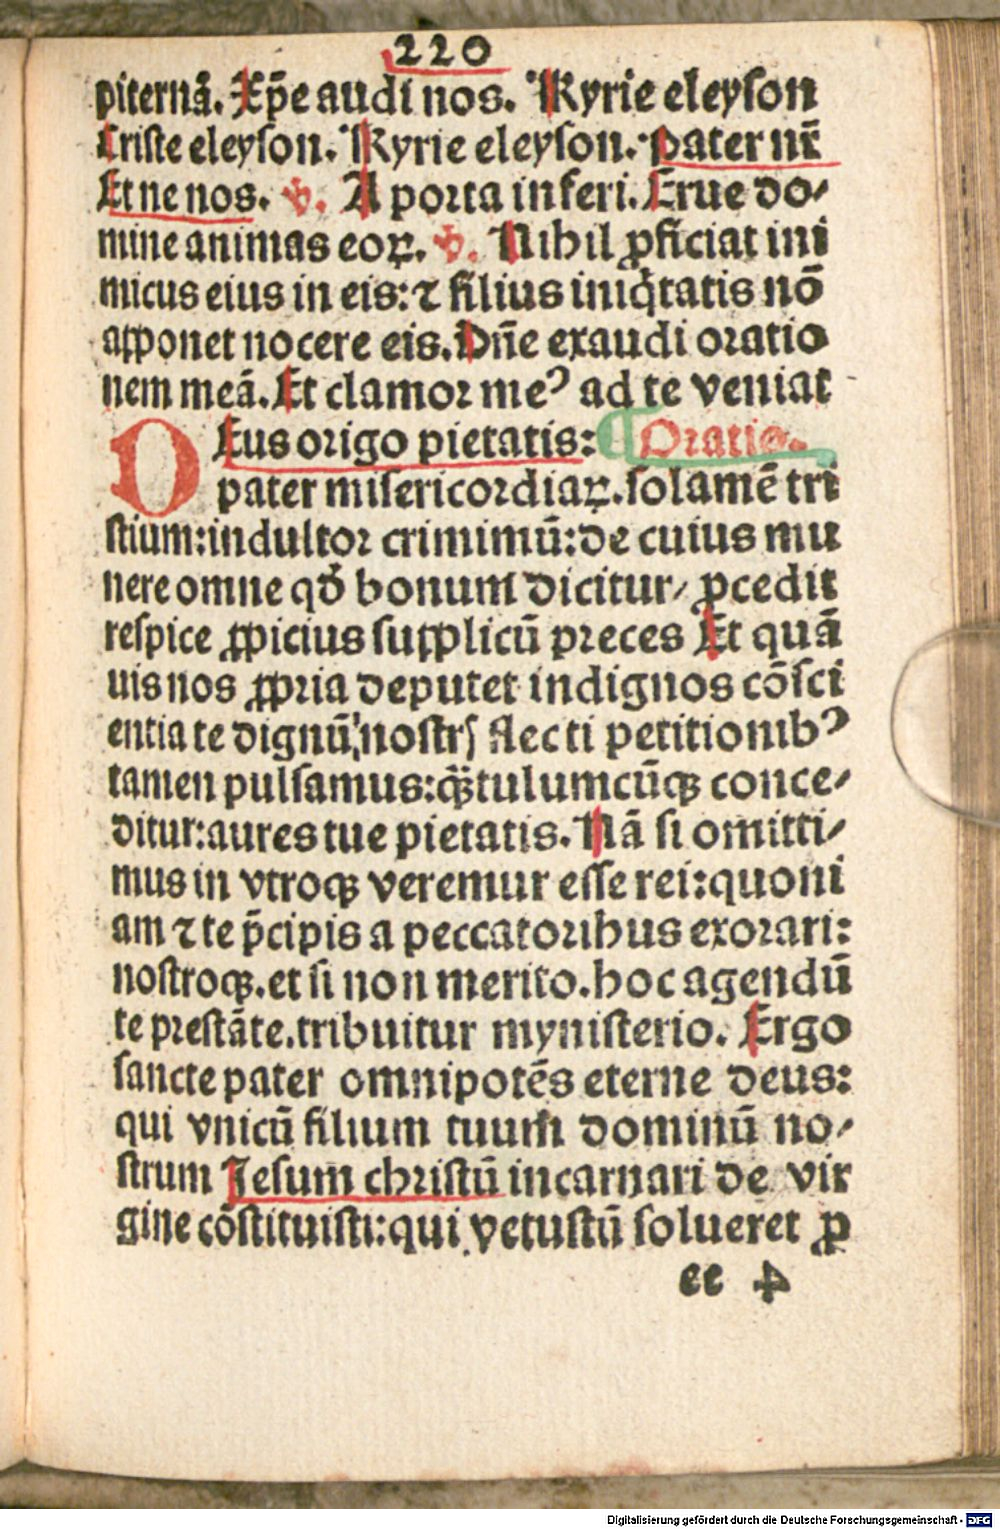 220
piternā. Xp̄e audi nos. Kyrie eleyſon
Criſte eleyſon. Kyrie eleyſon. Pater nr̄
Et ne nos. ꝟ. A porta inferi. Erue do⸗
mine animas eoꝝ. ꝟ. Nihil ꝓficiat ini
micus eius in eis: ⁊ filius iniq̇tatis nō
apponet nocere eis. Dn̄e exaudi oratio
nem meā. Et clamor meꝰ ad te veniat
DEus origo pietatis: ¶ Oratio.
pater miſericordiaꝝ. ſolamē tri
ſtium: indultor crimimū: de cuius mu
nere omne qď bonum dicitur/ ꝓcedit
reſpice ꝓpicius ſupplicū preces Et quā
uis nos ꝓpria deputet indignos cōſci
entia te dignū noſtrſ flecti petitionibꝰ
tamen pulſamus: qȝ̄tulumcūqȝ conce⸗
ditur: aures tue pietatis. Nā ſi omitti⸗
mus in vtroqȝ veremur eſſe rei: quoni
am ⁊ te p̄cipis a peccatoribus exorari:
noſtroqȝ. et ſi non merito. hoc agendū
te preſtāte. tribuitur myniſterio. Ergo
ſancte pater omnipotēs eterne deus:
qui vnicū filium tuum dominū no⸗
ſtrum Jeſum chriſtū incarnari de vir
gine cōſtituiſti: qui vetuſtū ſolueret ꝓ
ee 4
Digitalisierung gefördert durch die Deutsche Forschungsgemeinschaft - DFG